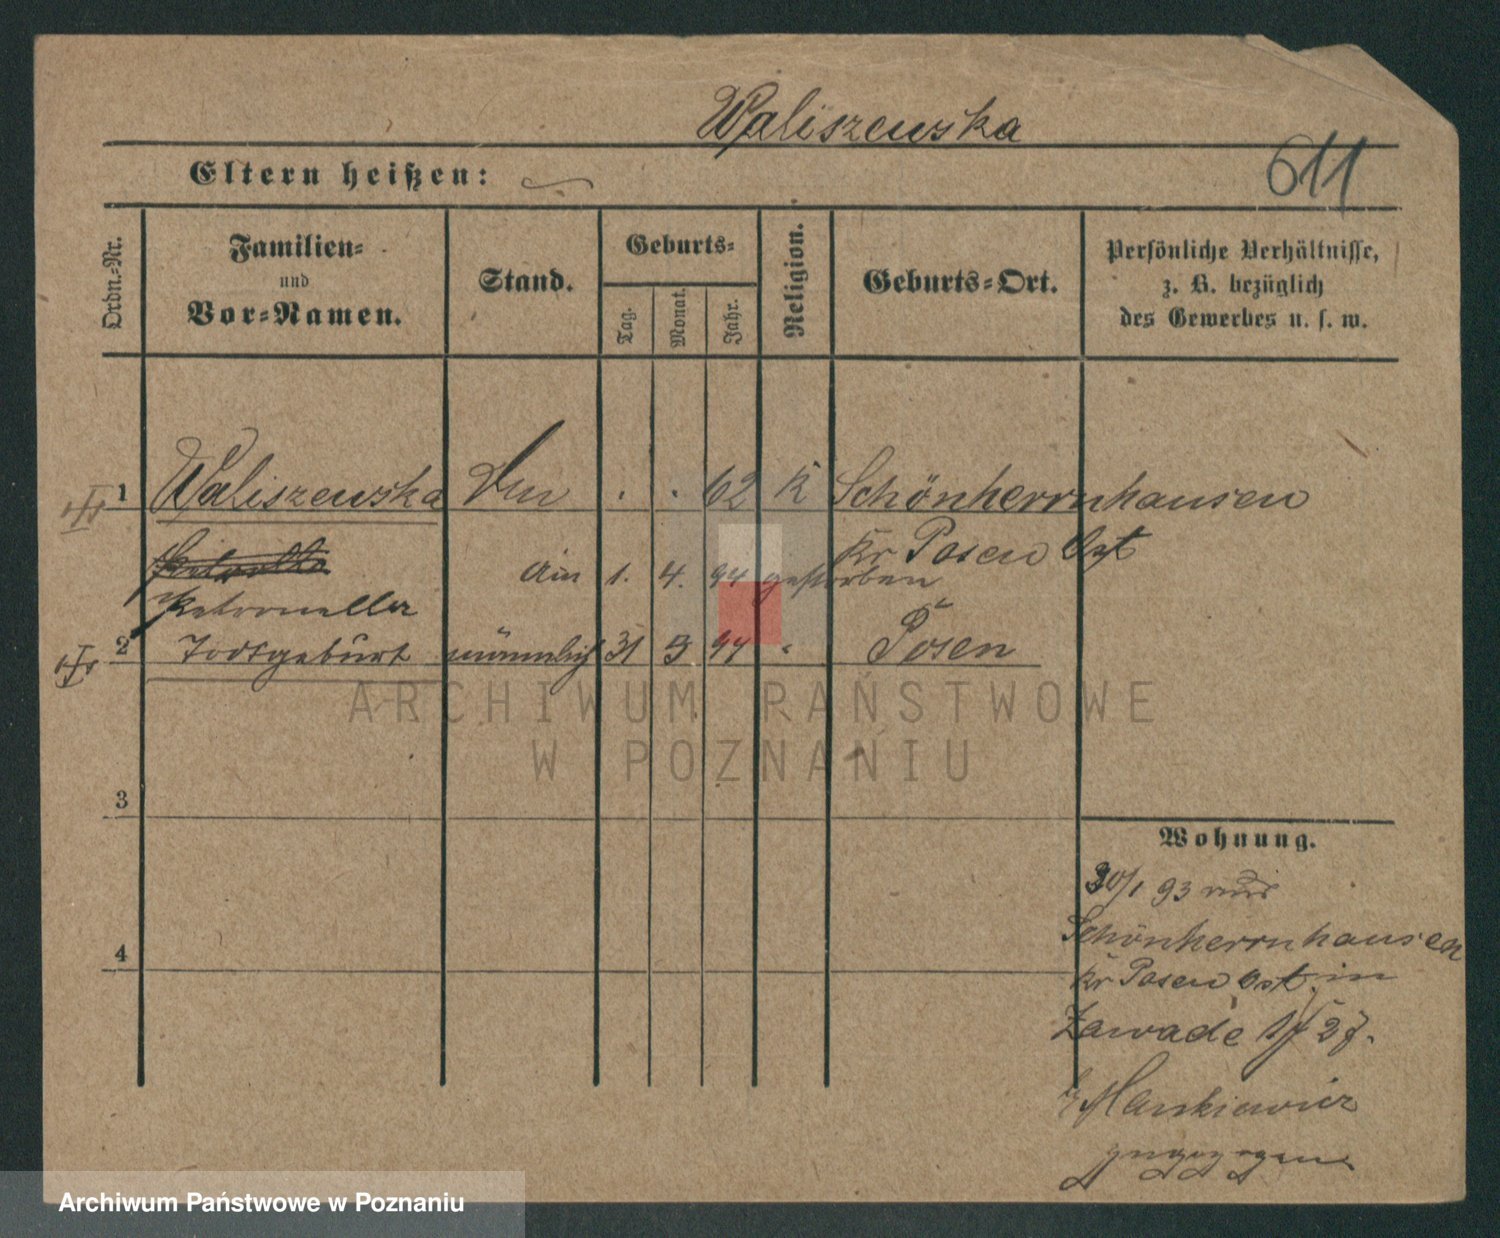 Waliszewska
611
Eltern heißen:
Ordn.-Nr.
Familien-
und
Vor-Namen.
Stand.
Geburts-
Tag.
Monat.
Jahr.
Religion.
Geburts-Ort.
Persönliche Verhältnisse,
z. B. bezüglich
des Gewerbes u. s. w.
1 Waliszewska . . 62 K Schönherrnhausen
Kr Posen Ost
am 1. 4. 94 gestorben
Petronella
2 Todtgeburt männlich 31 3 94 " Posen
ARCHIWUM PAŃSTWOWE
W POZNANIU
3
4
Wohnung.
30/1 93 aus
Schönherrnhausen
Kr Posen Ost in
Zawade
b/ Mankiewicz
zugezogen
Archiwum Państwowe w Poznaniu